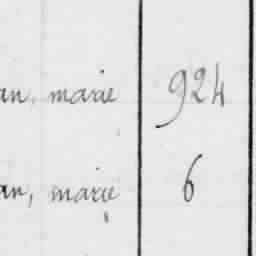 an, marie 924
an, marie 6